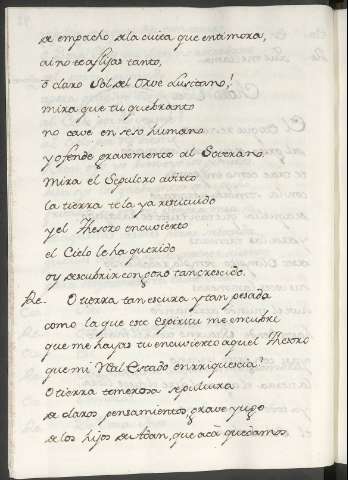 de empacho de la cuita que enamora,
ai no te aflijas tanto,
ô claro Sol del Orve Lusitano!
mira que tu quebranto
no cave en seso humano
y ofende gravemente al Soverano.
Mira el Sepulcro avierto
la tierra te la ya restituido
y el Thesoro encuvierto
el Cielo le ha querido
oy descubrir con gozo tan crescido.
O tierra tan escura y tan pesada
como la que este Espiritu me encubre
que me hayas tu encuvierto aquel Thesoro
que mi Real Estado enrriquescia?
O tierra temerosa sepultura
de claros pensamientos, grave yugo
de los hijos de Adan, que acà quedamos,